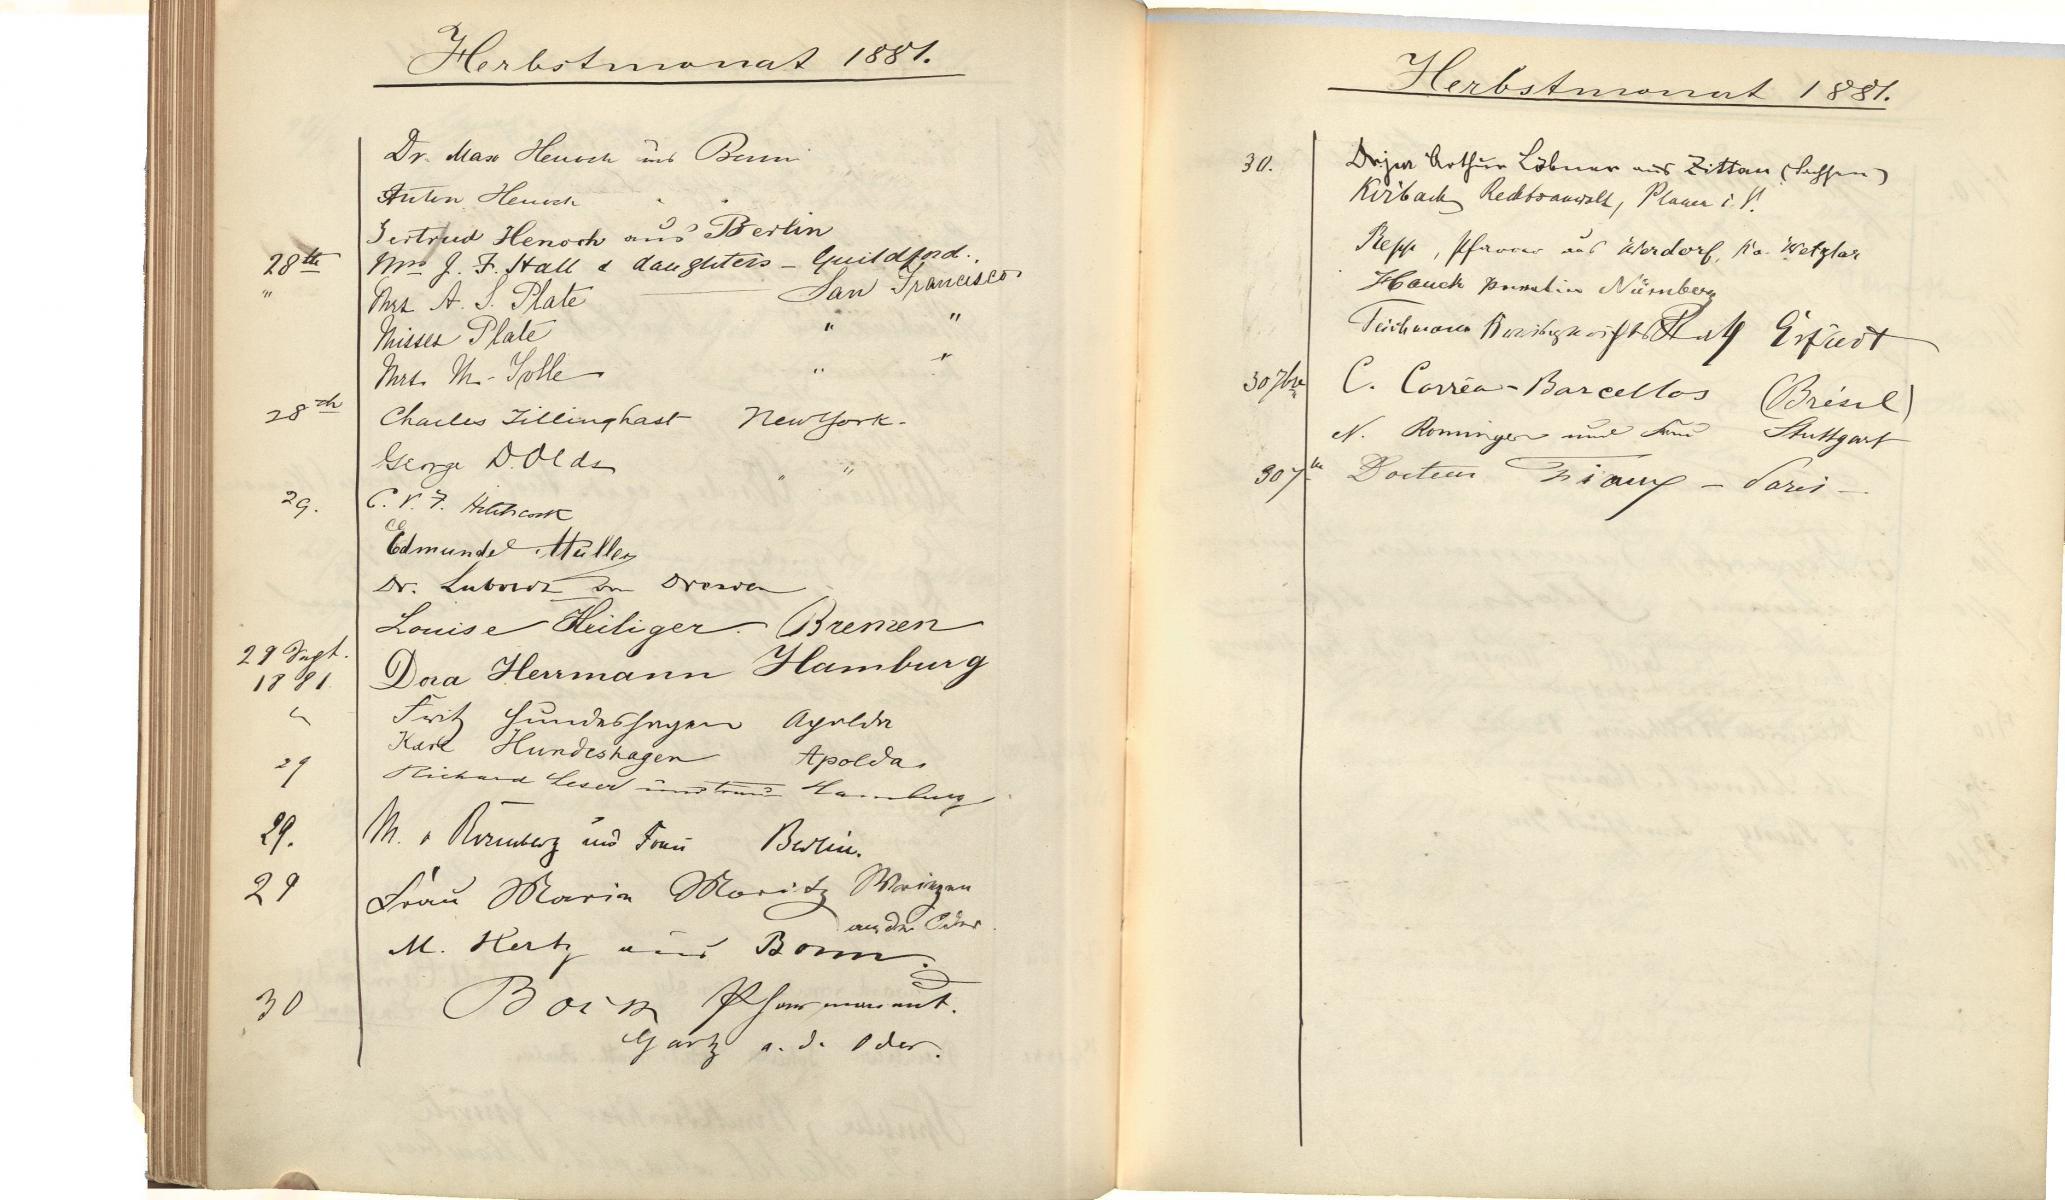 Herbstmonat 1881.
Dr. Max Henoch aus
Anton Henoch " "
Gertrud Henoch aus Berlin
28th Mrs J. F. Hall & daughters – Guildford.
" Mrs A. S. Plate San Francisco
Misses Plate " "
Mrs. M. Tolle " "
28th Charles Tillinghast New York.
George D. Olds " "
29. C. V. F. Hitchcock
Edmund Müller
Dr. Dresden
Louise Heiliger. Bremen
29 Sept. 1881 Dora Herrmann Hamburg
" Fritz Hundeshagen Apolda
Karl Hundeshagen Apolda
29 Richard Leser und Frau Hamburg
29. M. und Frau Berlin.
29 Frau Maria Moritz Wriezen
an der Oder.
M. Hertz aus Bonn.
30
Gartz a. d. Oder.
Herbstmonat 1881.
30. Dr jur Arthur Löbner aus Zittau (Sachsen)
Kirbach Rechtsanwalt, Plauen i. V.
Repp, Pfarrer aus Werdorf, Kr. Wetzlar
Hauck Nürnberg
Teichmann Erfurt
30 7bre C. Corrêa-Barcellos (Brésil)
N. Rominger und Frau Stuttgart
30 7bre Docteur Fiaux – Paris –